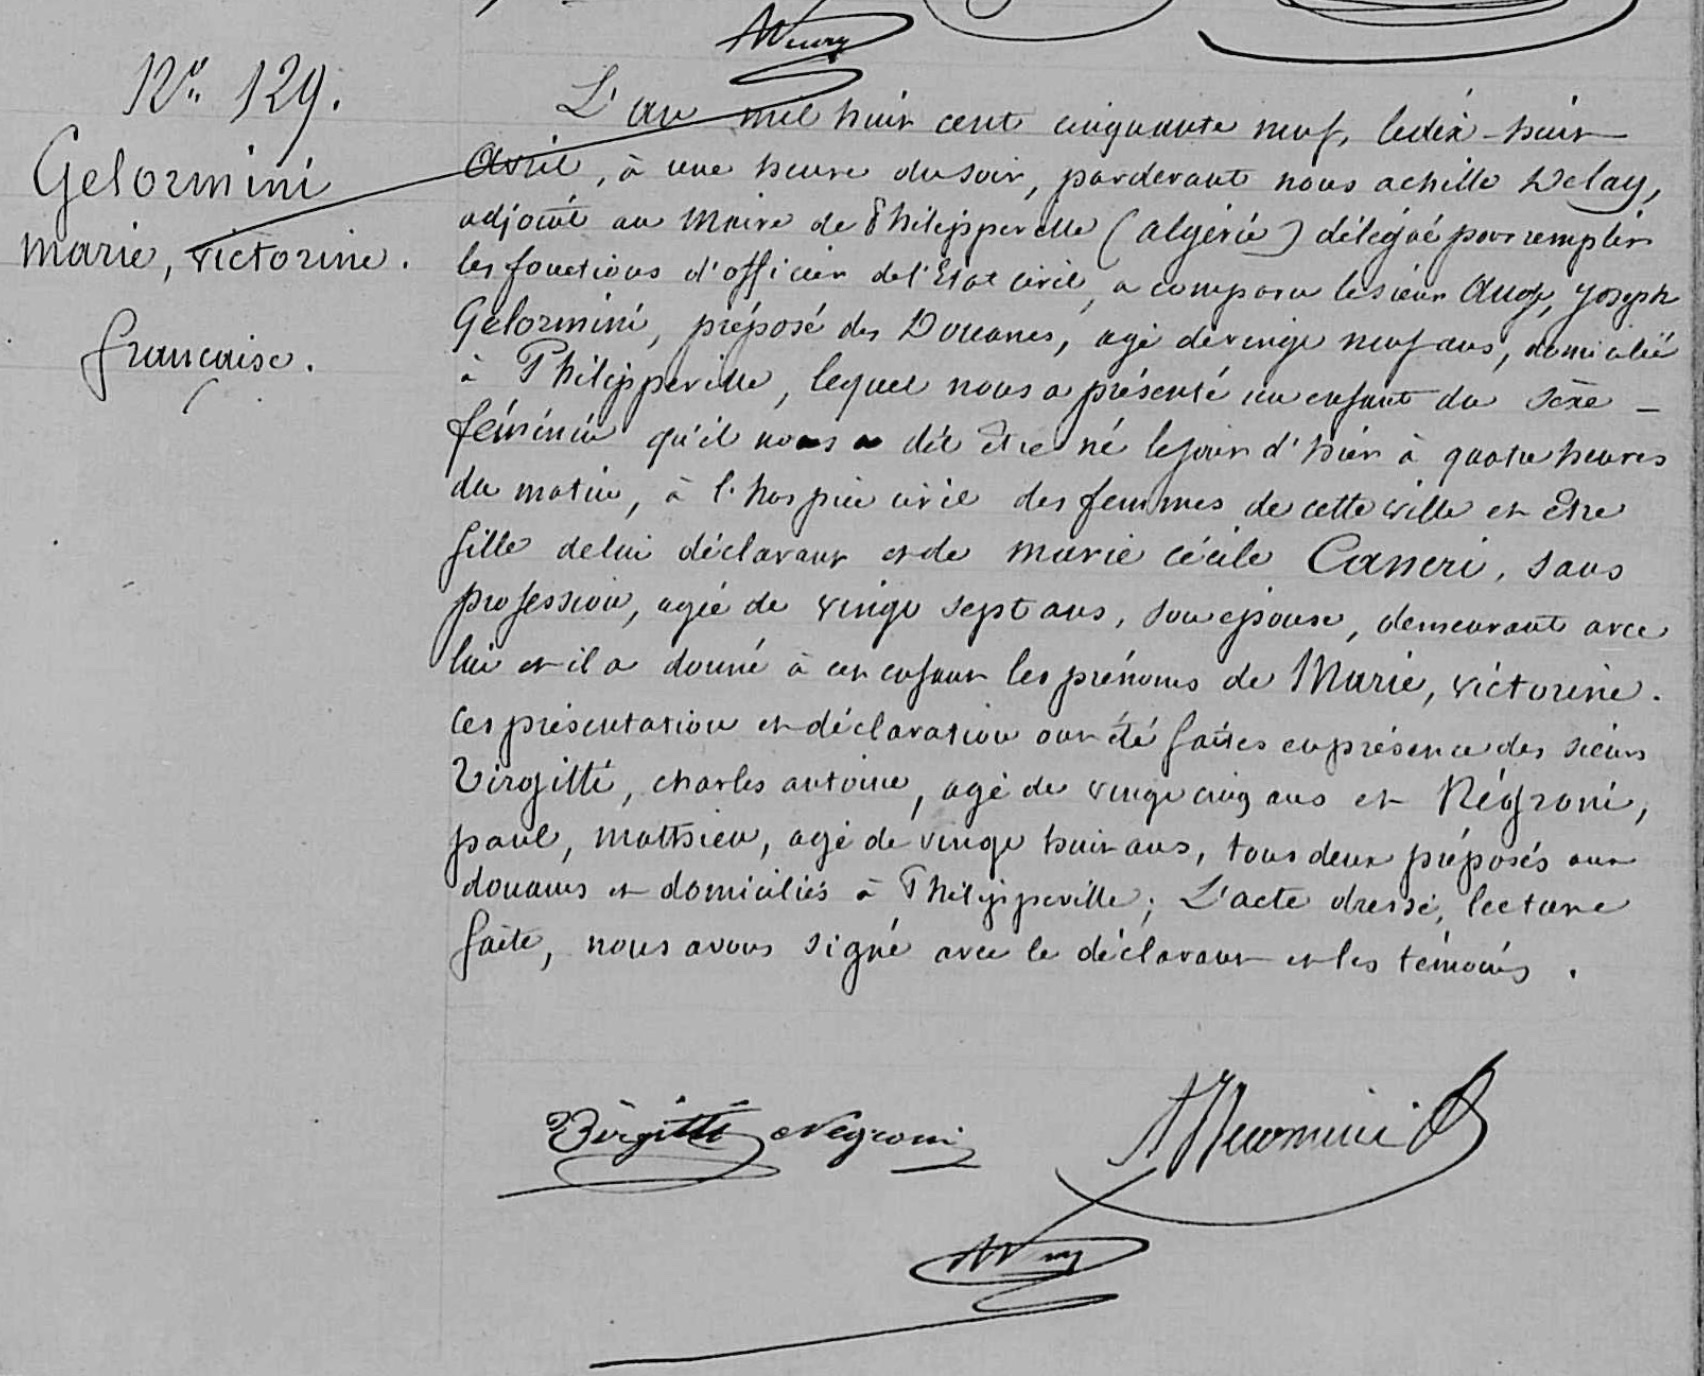 N° 129.
Gelormini
marie, victorine.
française.
L'an mil huit cent cinquante neuf, le dix-huit
Avril, à une heure du soir, pardevant nous achille Delay,
adjoint au Maire de Philippeville (algérie) délégué pour remplir
les fonctions d'officier de l'Etat civil, a comparu le sieur Ange, Joseph
Gelormini, préposé des Douanes, agé de vingt neuf ans, domicilié
à Philippeville, lequel nous a présenté un enfant du sexe -
féminin qu'il nous a dit être né le jour d'hier à quatre heures
du matin, à l'hospice civil des femmes de cette ville et être
fille de lui déclarant et de marie cécile Canneri, sans
profession, agée de vingt sept ans, son épouse, demeurant avec
lui et il a donné à cet enfant les prénoms de Marie, victorine.
Ces présentation et déclaration ont été faites en présence des sieurs
Virgitti, charles antoine, agé de vingt cinq ans et Négroni,
paul, mathieu, agé de vingt huit ans, tous deux préposés aux
douanes et domiciliés à Philippeville; L'acte dressé, lecture
faite, nous avons signé avec le déclarant et les témoins.
Virgitti Negroni